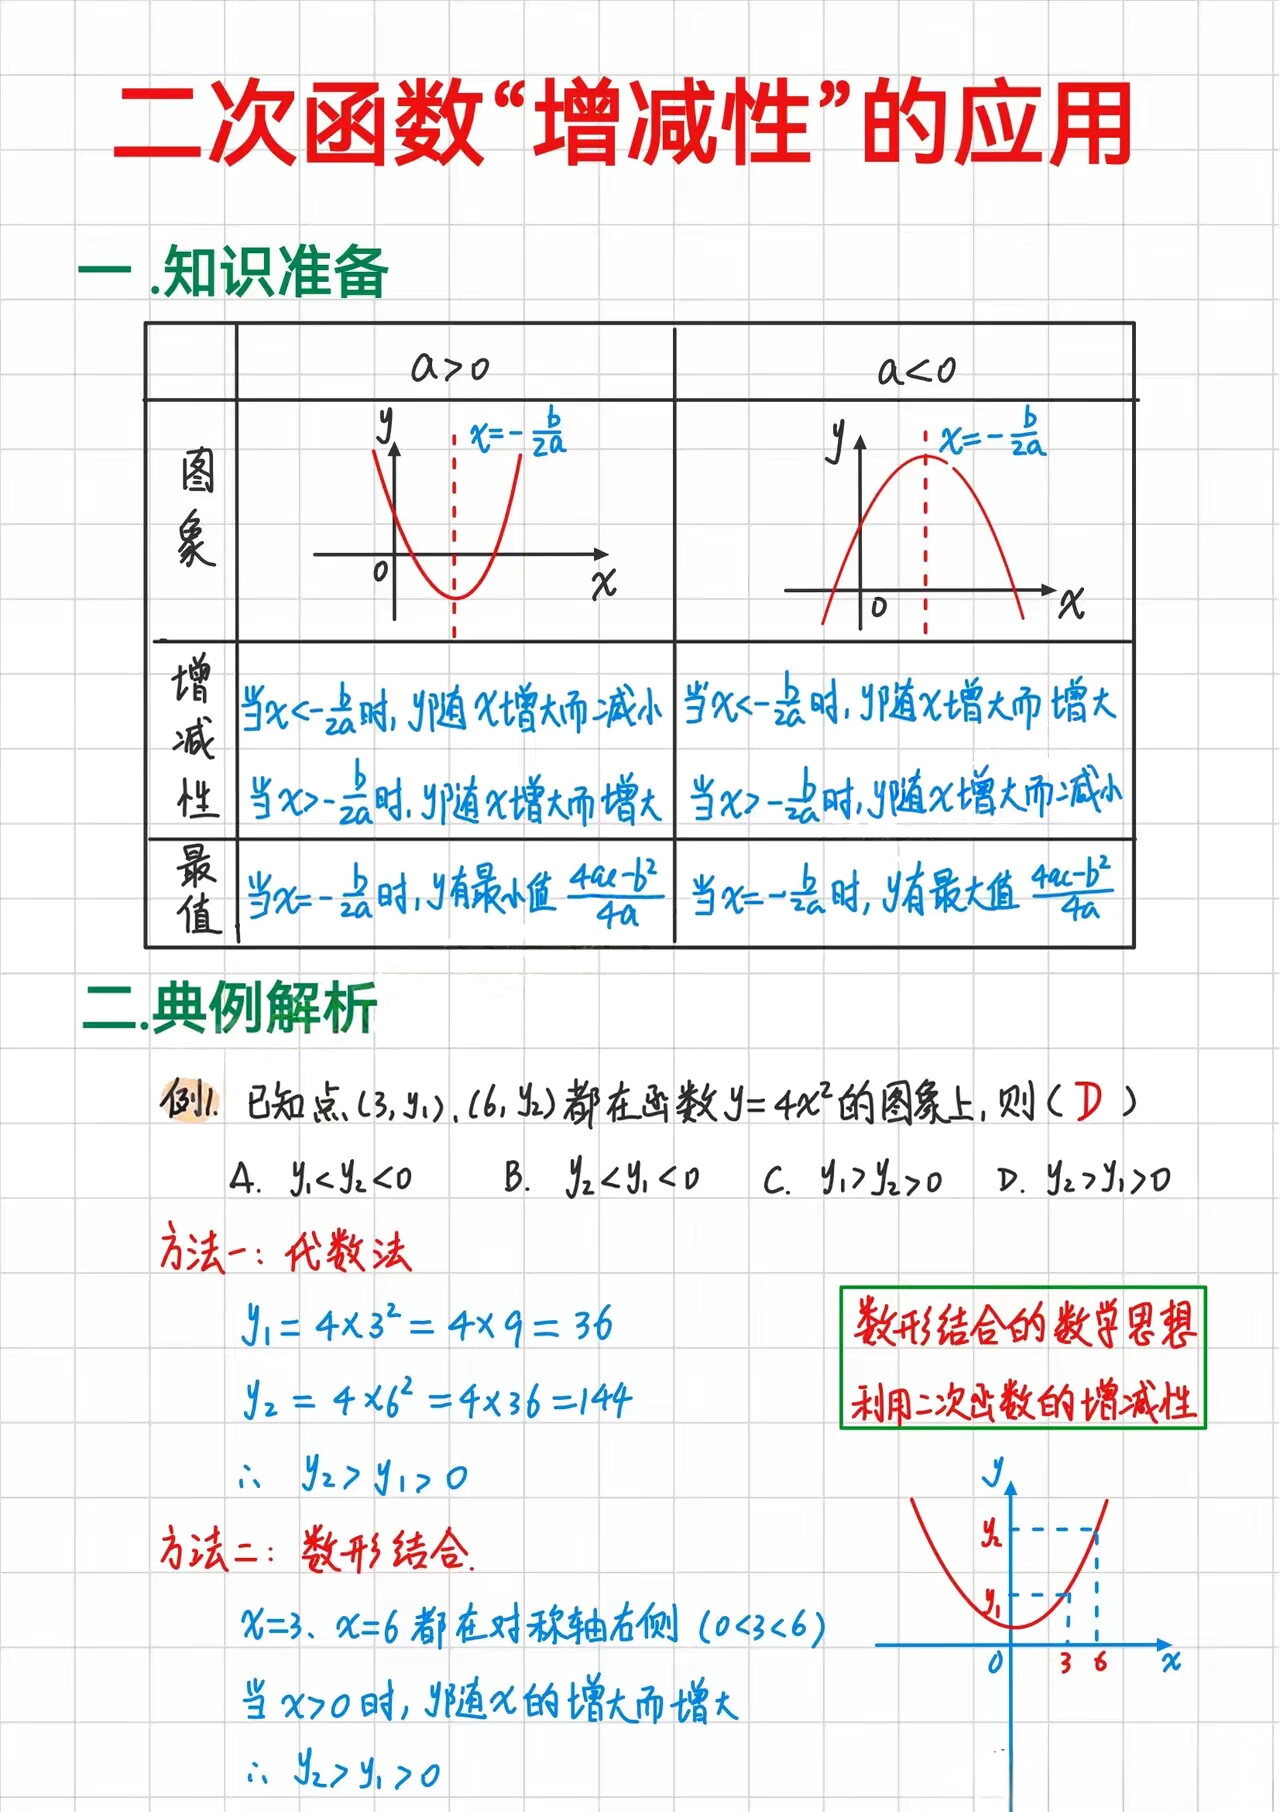 二次函数“增减性”的应用
一.知识准备
a>0
a<0
图象
y
x=-b/2a
0
x
y
x=-b/2a
0
x
增减性
当x<-b/2a时,y随x增大而减小
当x>-b/2a时,y随x增大而增大
当x<-b/2a时,y随x增大而增大
当x>-b/2a时,y随x增大而减小
最值
当x=-b/2a时,y有最小值 (4ac-b²)/4a
当x=-b/2a时,y有最大值 (4ac-b²)/4a
二.典例解析
例1. 已知点(3,y₁),(6,y₂)都在函数y=4x²的图象上,则(D)
A. y₁<y₂<0 B. y₂<y₁<0 C. y₁>y₂>0 D. y₂>y₁>0
方法一:代数法
y₁=4×3²=4×9=36
y₂=4×6²=4×36=144
∴ y₂>y₁>0
数形结合的数学思想
利用二次函数的增减性
方法二:数形结合.
x=3、x=6都在对称轴右侧(0<3<6)
当x>0时,y随x的增大而增大
∴ y₂>y₁>0
y
y₂
y₁
0 3 6 x